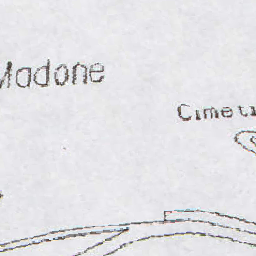 Madone
Cimeti